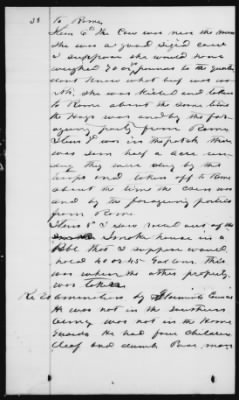 38 to Rome
Item 6th The Cow was near the same
She was a good sized cow
I suppose she would have
weighed 70 or pounds to the quarter
dont know what beef was wo
rth. She was killed and taken
to Rome about the same time
the Hogs was and by the for
aging party from Rome
Item 7 was in the patch there
was some half a acre
they were dug by the
troops and taken off to Rome
about the time the corn was
and by the foraging parties
from Rome
Item 8 I saw meal out of the
Smoke house in a
Bbl that I suppose would
hold 40 or 45 Gallons. This
was when the other property
was taken
Re Examination by
He was not in the Southern
army was not in the Home
guards He had four children
deaf and dumb Poor man